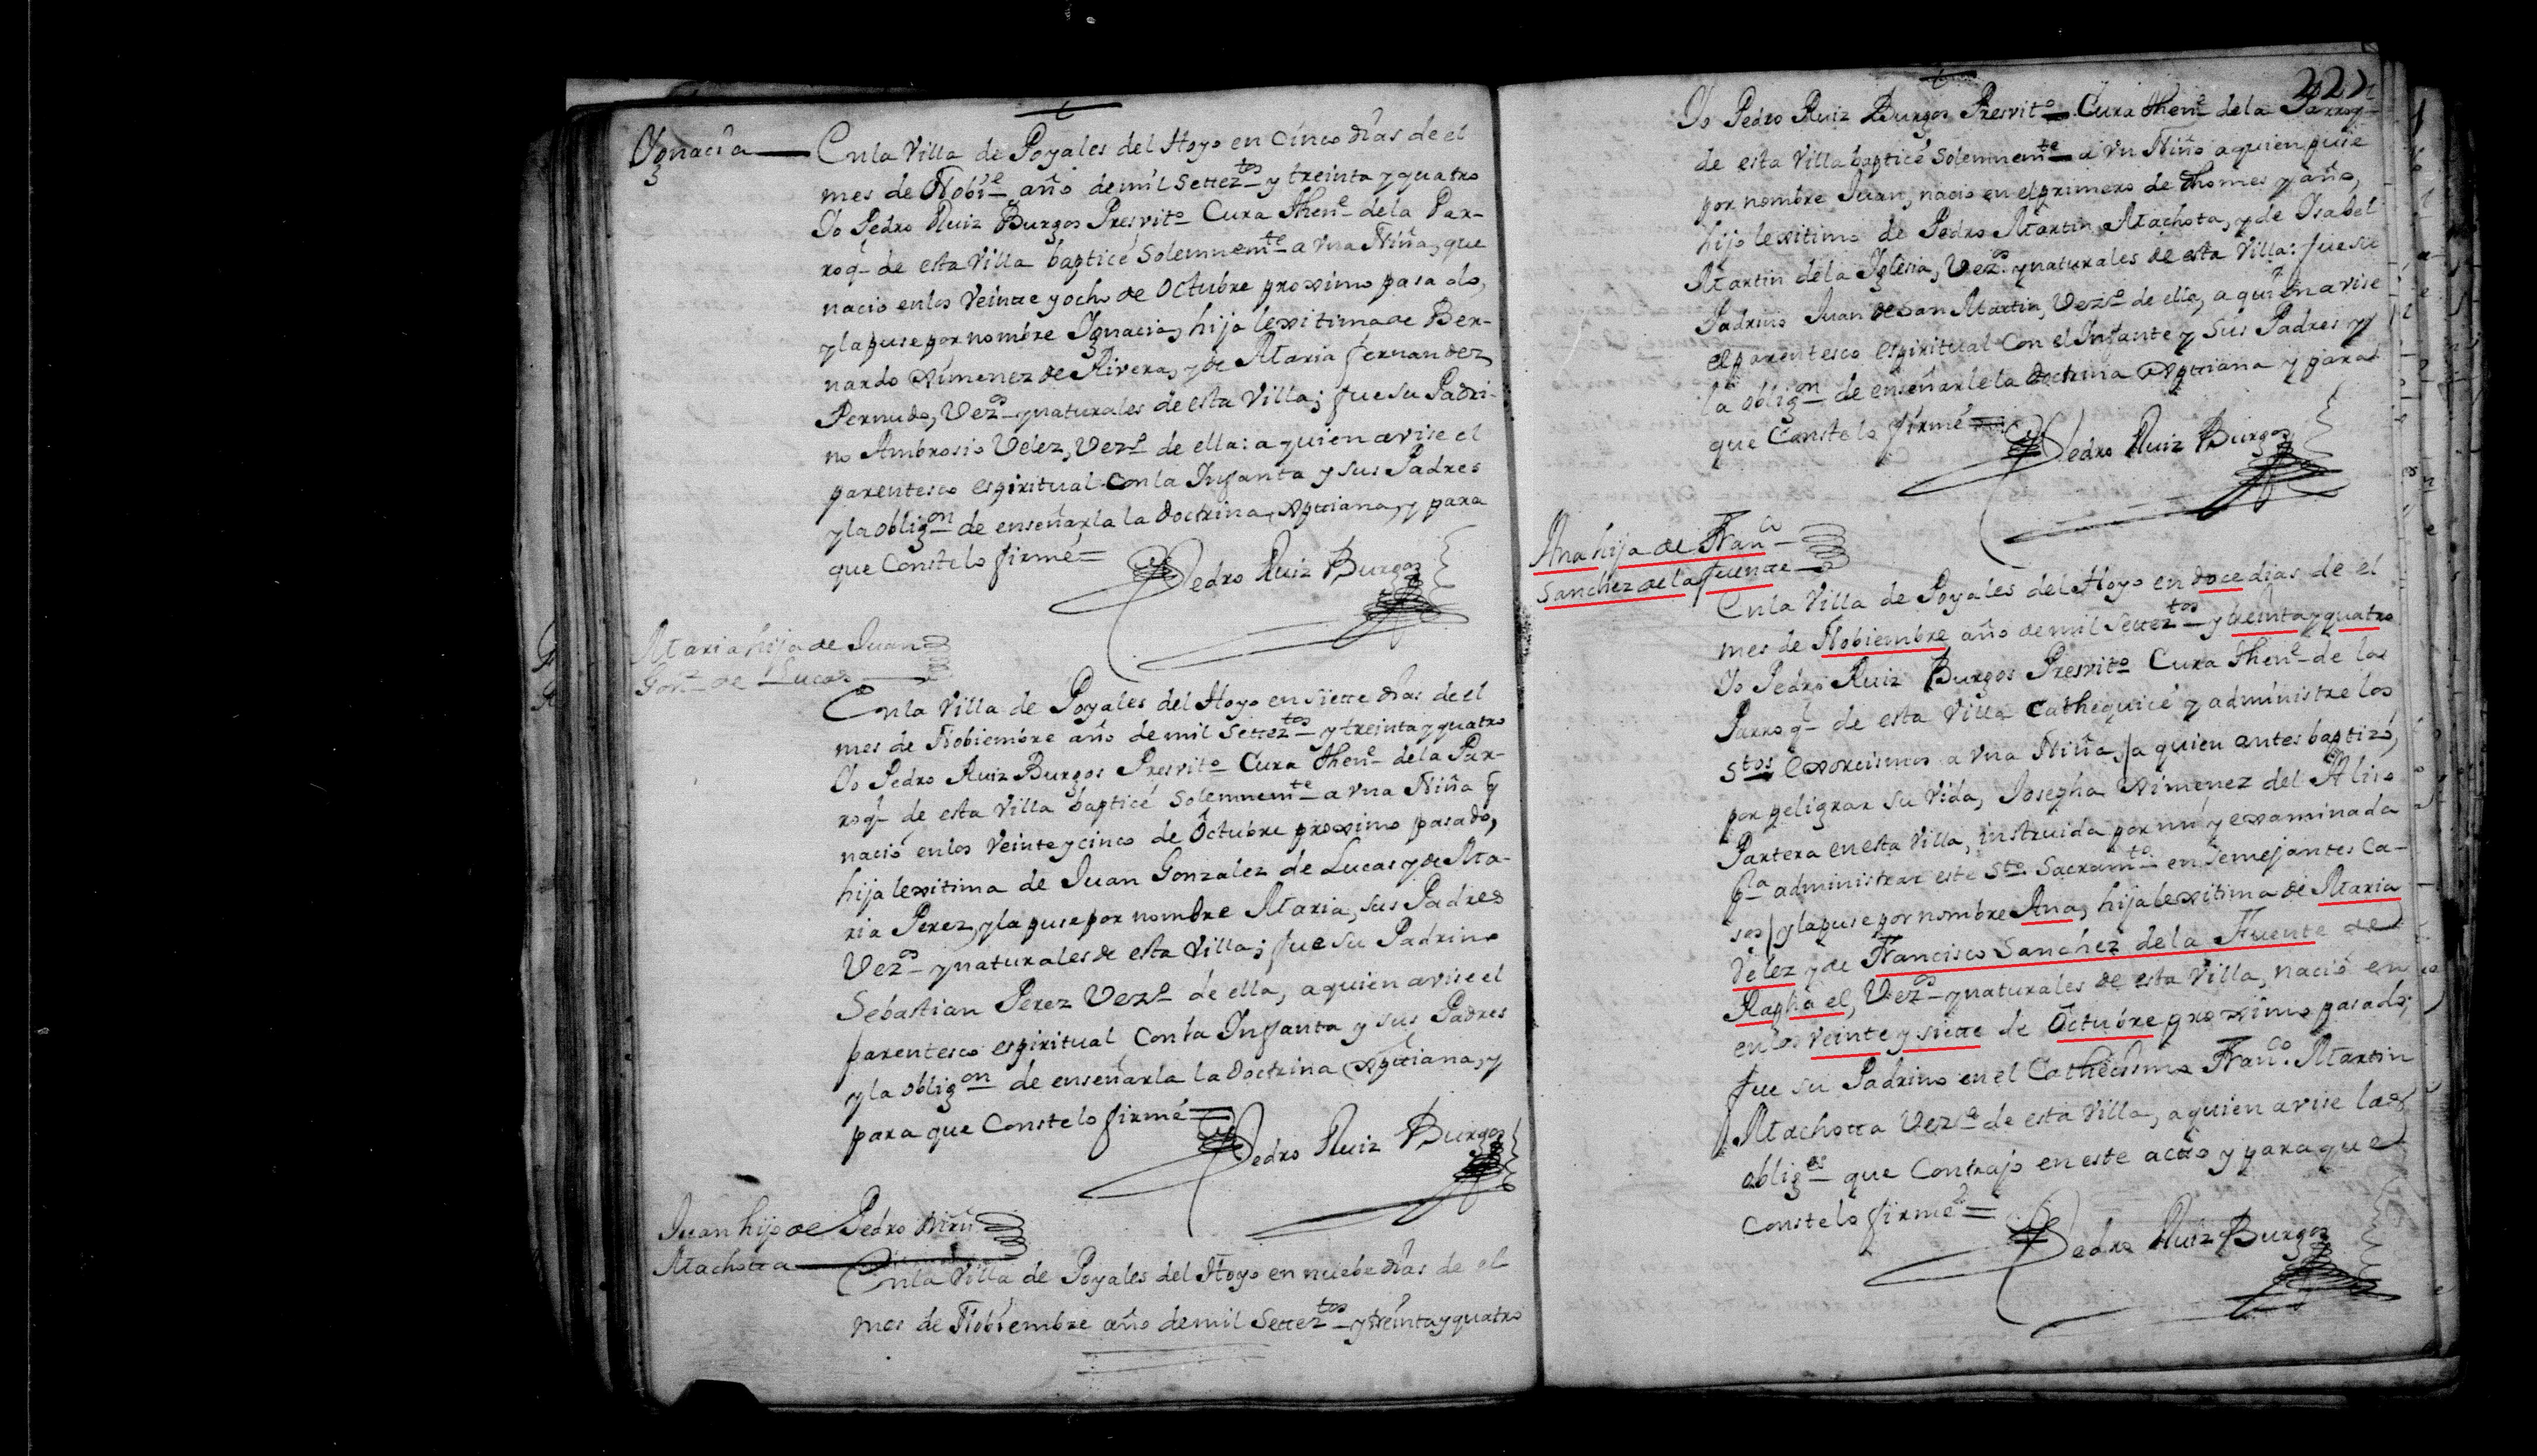 Ygnacia
En la Villa de Poyales del Hoyo en cinco dias de el
mes de Nobi.e año de mil Settez.tos y treinta y quatro
Yo Pedro Ruiz Burgos Presvit.o Cura Then.e de la Par-
roq.l de esta Villa bapticé Solemnem.te a vna Niña, que
nacio en los Veinte y ocho de Octubre proximo pasado,
y la puse por nombre Ygnacia, hija lexitima de Ber-
nardo Ximenez de Rivera, y de Maria Fernandez
Pernudo, Vez.os y naturales de esta Villa; fue su Padri-
no Ambrosio Velez, Vez.o de ella: a quien avise el
parentesco espiritual con la Infanta y sus Padres
y la oblig.on de enseñarla la Doctrina Xptiana, y para
que Conste lo firmé=
Pedro Ruiz Burgos
Maria hija de Juan
Gonz. de Lucas
En la Villa de Poyales del Hoyo en siette dias de el
mes de Nobiembre año de mil Settez.tos y treinta y quatro
Yo Pedro Ruiz Burgos Presvit.o Cura Then.e de la Par-
roq.l de esta Villa bapticé Solemnem.te a vna Niña q
nació en los Veinte y cinco de Octubre proximo pasado,
hija lexitima de Juan Gonzalez de Lucas y de Ma-
ria Perez, y la puse por nombre Maria, sus Padres
Vez.os y naturales de esta Villa; fue su Padrino
Sebastian Perez Vez.o de ella, a quien avise el
parentesco espiritual con la Infanta y sus Padres
y la oblig.on de enseñarla la Doctrina Xptiana, y
para que Conste lo firmé=
Pedro Ruiz Burgos
Juan hijo de Pedro Mrn
Machotta
En la Villa de Poyales del Hoyo en nuebe dias de el
mes de Nobiembre año de mil Settez.tos y treinta y quatro
222
Yo Pedro Ruiz Burgos Presvit.o Cura Then.e de la Parroq.l
de esta Villa bapticé Solemnem.te a vn Niño a quien puse
por nombre Juan, nacio en el primero de dho mes y año,
hijo lexitimo de Pedro Martin Machota, y de Isabel
Martin de la Iglesia, Vez.os y naturales de esta Villa: fue su
Padrino Juan de San Martin, Vez.o de ella, a quien avise
el parentesco espiritual con el Infante y sus Padres y
la oblig.on de enseñarle la doctrina Xptiana y para
que Conste lo firmé=
Pedro Ruiz Burgos
Ana hija de Fran.co
Sanchez de la fuente
En la Villa de Poyales del Hoyo en doce dias de el
mes de Nobiembre año de mil Settez.tos y treinta y quatro
Yo Pedro Ruiz Burgos Presvit.o Cura Then.e de la
Parroq.l de esta Villa Cathequicé y administre los
S.tos Exorcismos a vna Niña, a quien antes baptizó,
por peligrar su Vida, Josepha Ximenez del Aliso
Partera en esta Villa, instruida por mi y examinada
p.a administrar este S.to Sacram.to en semejantes Ca-
sos y la puse por nombre Ana, hija lexitima de Maria
Velez y de Francisco Sanchez de la Fuente de
Raphael, Vez.os y naturales de esta Villa, nació en
en los veinte y siette de Octubre proximo pasado;
fue su Padrino en el Cathecismo Fran.co Martin
Machotta Vez.o de esta Villa, a quien avise las
oblig.es que Contrajo en este acto y para que
Conste lo firmé=
Pedro Ruiz Burgos